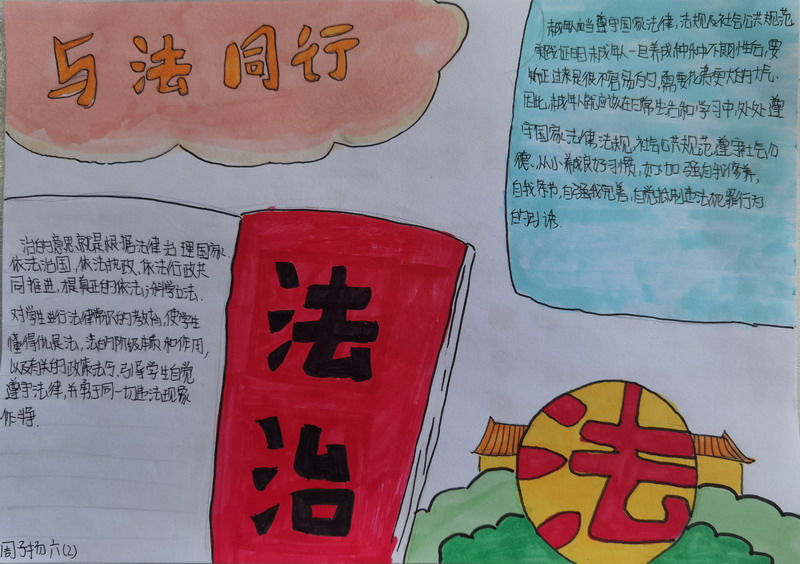 与法同行
未成年人应当遵守国家法律、法规及社会公共规范
实践证明未成年人一旦养成种种不良习性后,要
矫正过来是很不容易的,需要花费更大的力气.
因此,未成年人就应该在日常生活和学习中,处处遵
守国家法律,法规,社会公共规范遵守社会公
德、从小养成良好习惯,如:加强自我修养,
自我养节,自强我完善,自觉抵制违法犯罪行为
的引诱.
治的意思就是根据法律治理国家.
依法治国,依法执政、依法行政共
同推进,根真正的依法;科学立法.
对学生进行法律常识的教育,使学生
懂得什么是法,法的阶级本质和作用,
以及有关的政策法令.引导学生自觉
遵守法律,并勇于同一切违法现象
作斗争.
法治
法
周子扬 六(2)